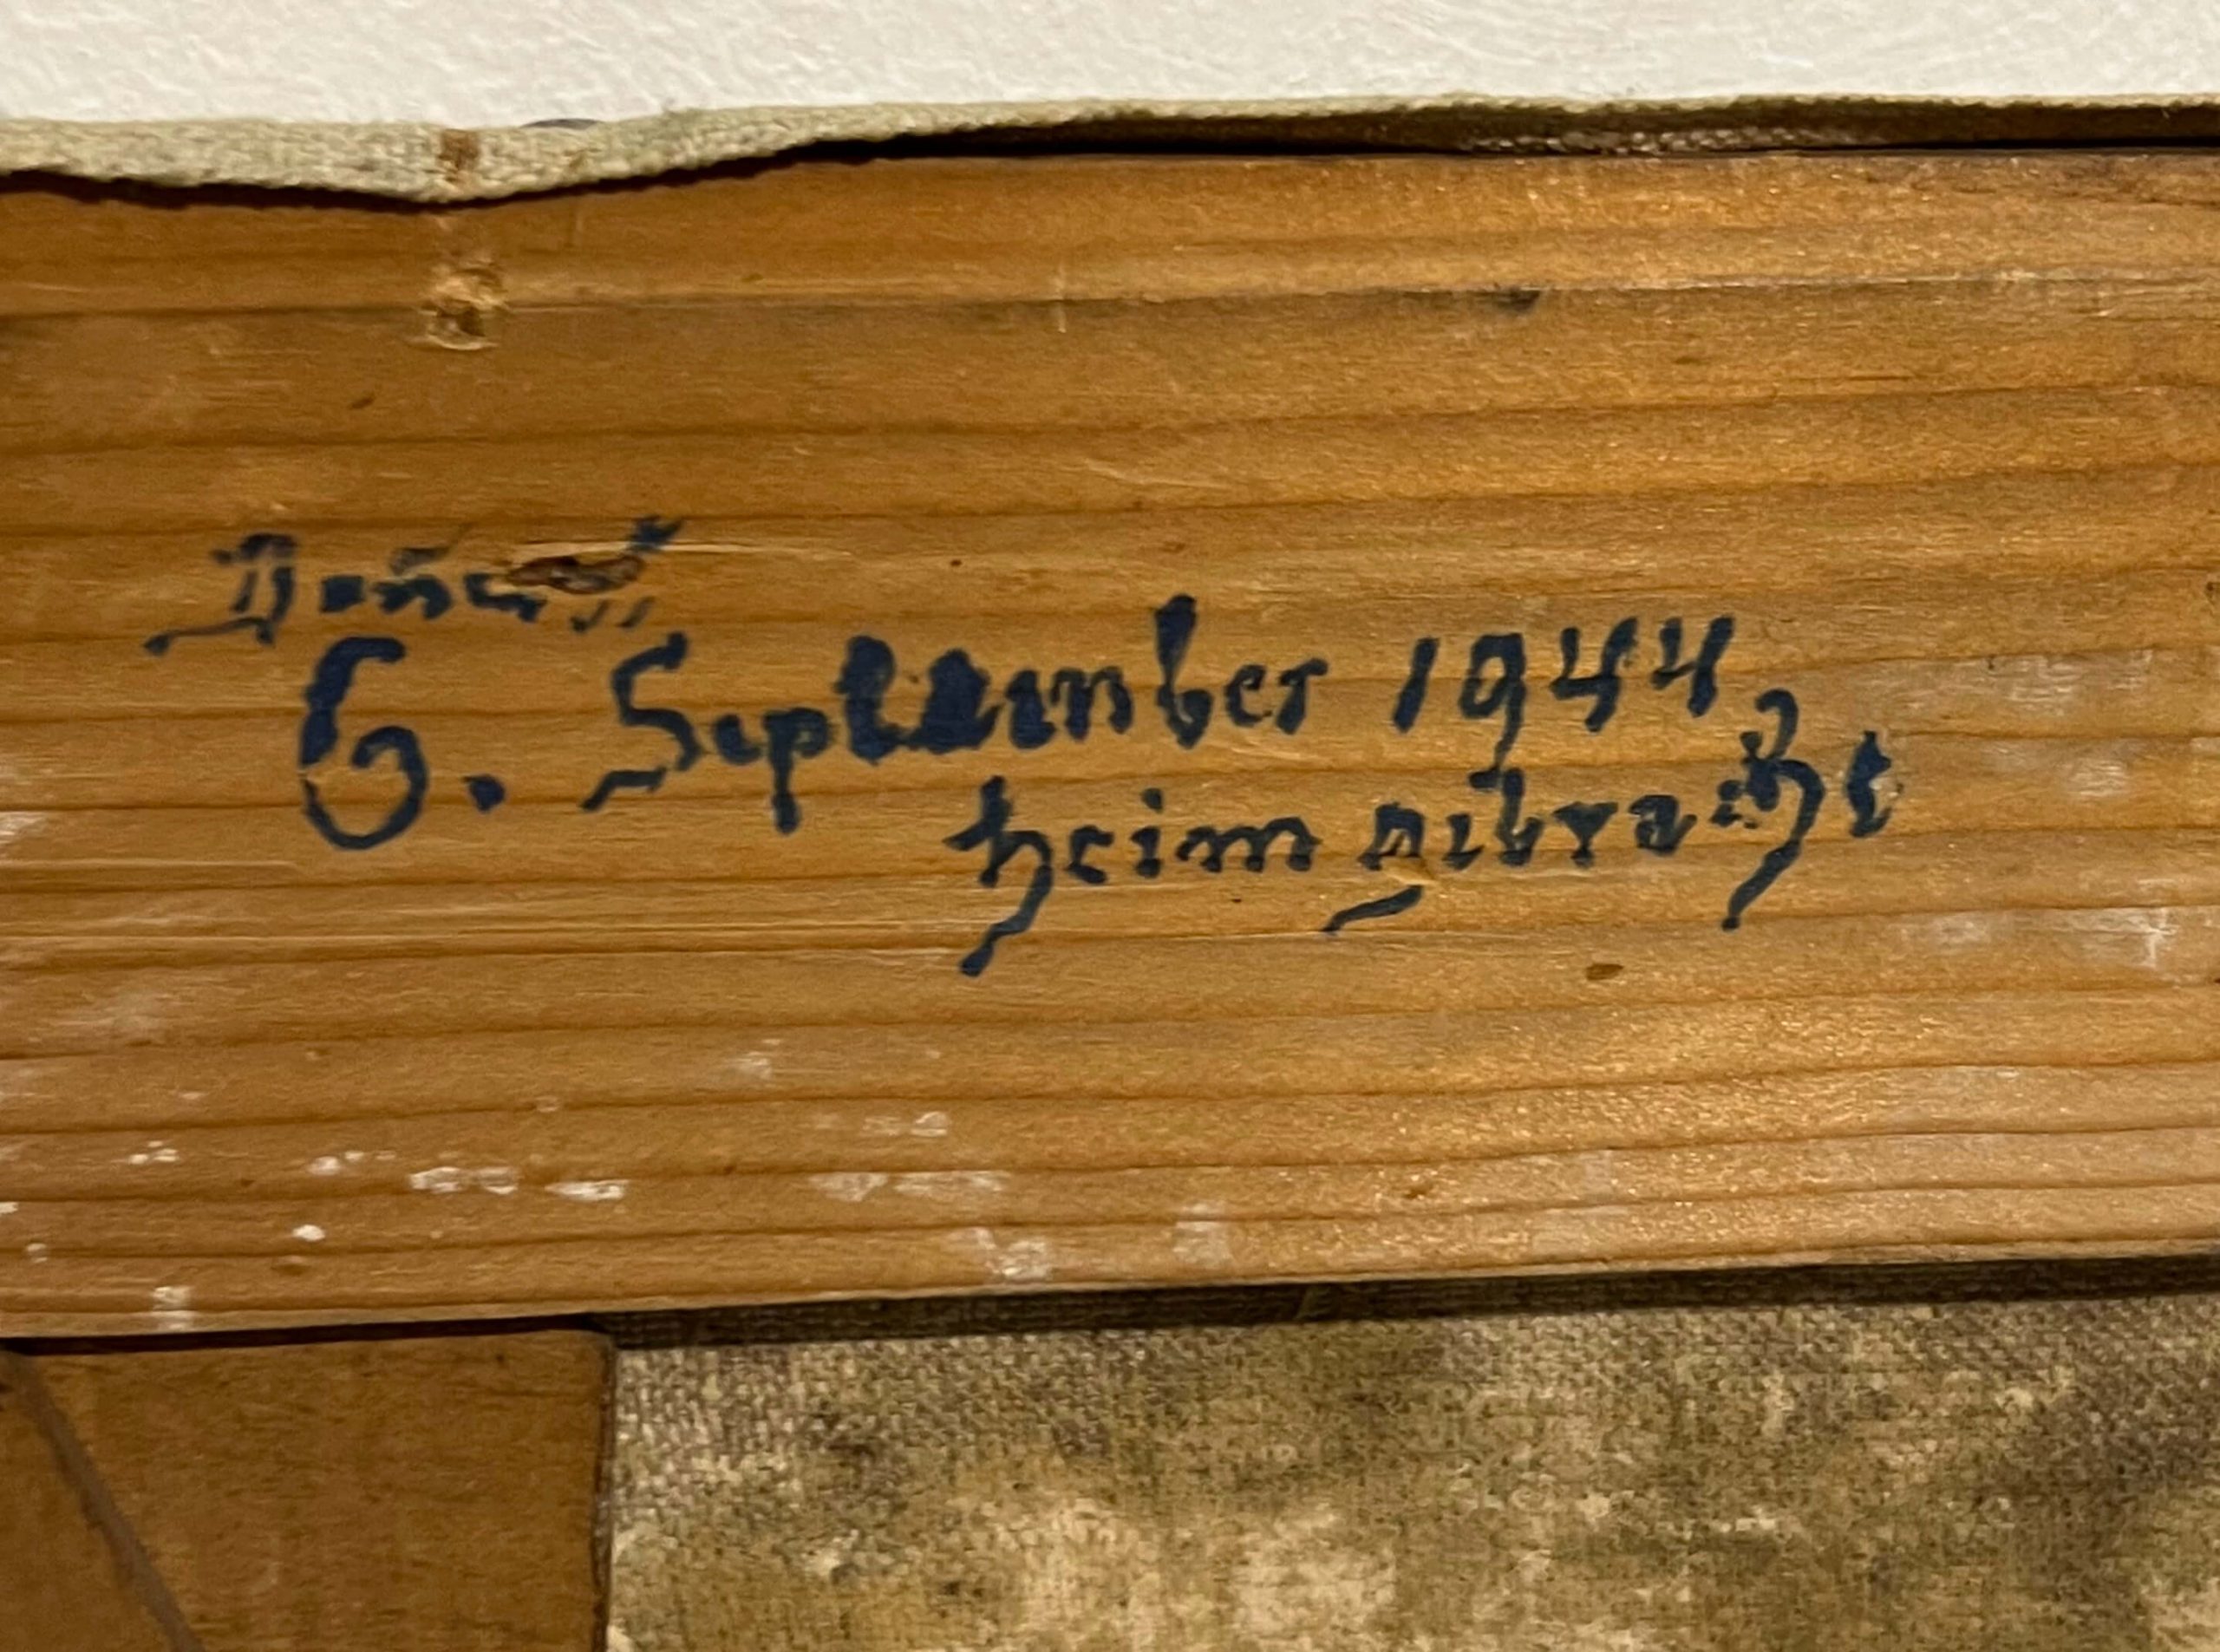 6. September 1944
heimgebracht